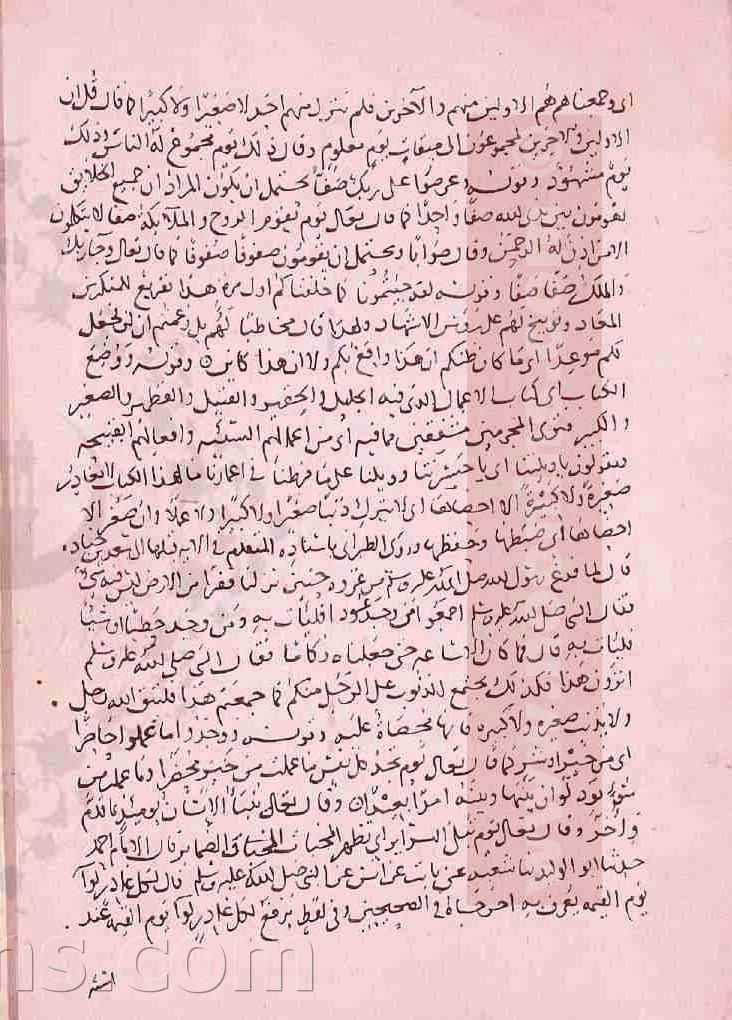 اى وجمعناهم هم الاولين منهم والآخرين فلم نترك منهم احد لا صغيرا ولا كبيرا كما قال قل ان
الاولين والاخرين لمجموعون الى ميقات يوم معلوم وقال ذلك يوم مجموع له الناس وذلك
يوم مشهود وقوله وعرضوا على ربك صفا يحتمل ان يكون المراد ان جميع الخلايق
يقومون بين يدى الله صفا واحدا كما قال تعالى يوم يقوم الروح والملآئكة صفا لا يتكلمون
الا من اذن له الرحمن وقال صوابا ويحتمل ان يقومون صفوفا صفوفا كما قال تعالى وجا ربك
والملك صفا صفا وقوله لقد جئتمونا كما خلقناكم اول مره هذا تقريع للمنكرين
المعاد وتوبيخ لهم على روس الاشهاد ولهذا قال مخاطبا لهم بل زعمتم ان لن نجعل
لكم موعدا اى ما كان ظنكم ان هذا واقع بكم ولا ان هذا كائن وقوله ووضع
الكتاب اى كتاب الاعمال الذى فيه الجليل والحقير والفتيل والقطمير والصغير
والكبير فترى المجرمين مشفقين مما فيه اى من اعمالهم السيئه وافعالهم القبيحه
ويقولون يا ويلتنا اى يا حسرتنا وويلنا على ما فرطنا فى اعمارنا ما لهذا الكتاب لا يغادر
صغيرة ولا كبيرة الا احصاها اى لا يترك ذنبا صغيرا ولا كبيرا ولا عملا وان صغر الا
احصاها اى ضبطها وحفظها وروى الطبرانى باسناده المتقدم فى الايه قبلها الى سعد بن جناده
قال لما فرغ رسول الله صلى الله عليه وسلم من غزوه حنين نزلنا قفرا من الارض ليس فيه شى
فقال النبى صلى الله عليه وسلم اجمعوا من وجد عودا فليات به ومن وجد حطبا او شيا
فليات به قال فما كان الا ساعه حتى جعلناه ركاما فقال النبى صلى الله عليه وسلم
اترون هذا فكذلك تجمع الذنوب على الرجل منكم كما جمعتم هذا فليتق الله رجل
ولا يذنب صغيره ولا كبيره فانها محصاة عليه وقوله ووجدوا ما عملوا حاضرا
اى من خير او شر كما قال تعالى يوم تجد كل نفس ما عملت من خير محضرا وما عملت من
سوء تود لو ان بينها وبينه امدا بعيدا وقال تعالى ينبأ الانسان يوميذ بما قدم
واخر وقال تعالى يوم تبلى السراير اى تظهر المخبات والضماير قال الامام احمد
حدثنا ابو الوليد ثنا شعبه عن ثابت عن انس عن النبى صلى الله عليه وسلم قال لكل غادر لوآ
يوم القيمه يعرف به اخرجاه فى الصحيحين وفى لفظ يرفع لكل غادر لوآ يوم القيمه عند
استه
ns.com